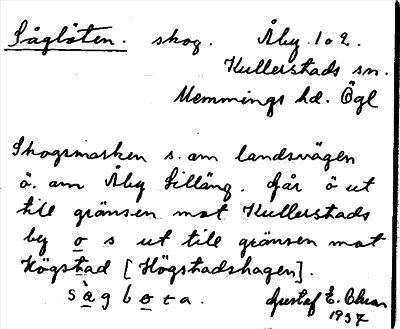 Såglöten. skog. Åby. 1 o 2.
Kullerstads sn.
Memmings hd. Ögl
Skogsmarken s. om landsvägen
ö. om Åby Lilläng. Går ö ut
till gränsen mot Kullerstads
by o s ut till gränsen mot
Högstad [Högstadshagen].
sàgbota.
Gustaf E. Olson
1937